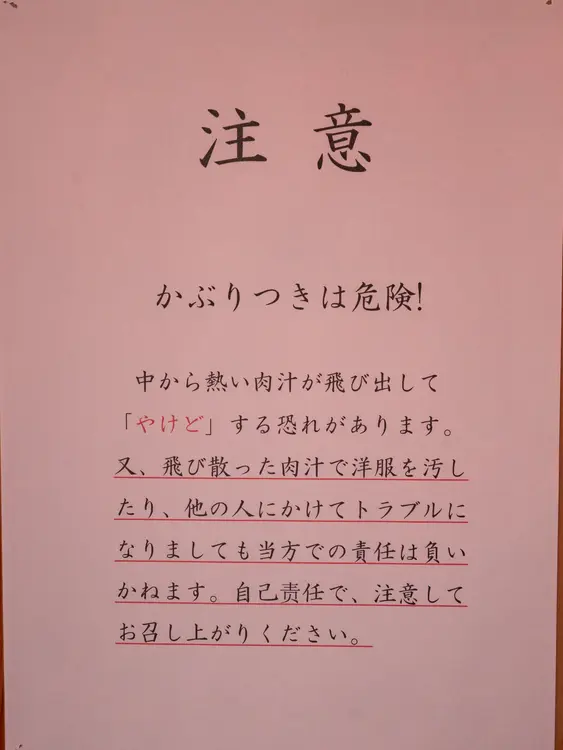 注意
かぶりつきは危険!
中から熱い肉汁が飛び出して
「やけど」する恐れがあります。
又、飛び散った肉汁で洋服を汚し
たり、他の人にかけてトラブルに
なりましても当方での責任は負い
かねます。自己責任で、注意して
お召し上がりください。